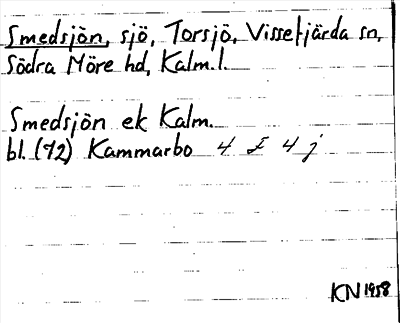 Smedsjön, sjö, Torsjö, Vissefjärda sn,
Södra Möre hd, Kalm.l.
Smedsjön ek Kalm.
bl. (72) Kammarbo 4 £ 4 j
KN 1958